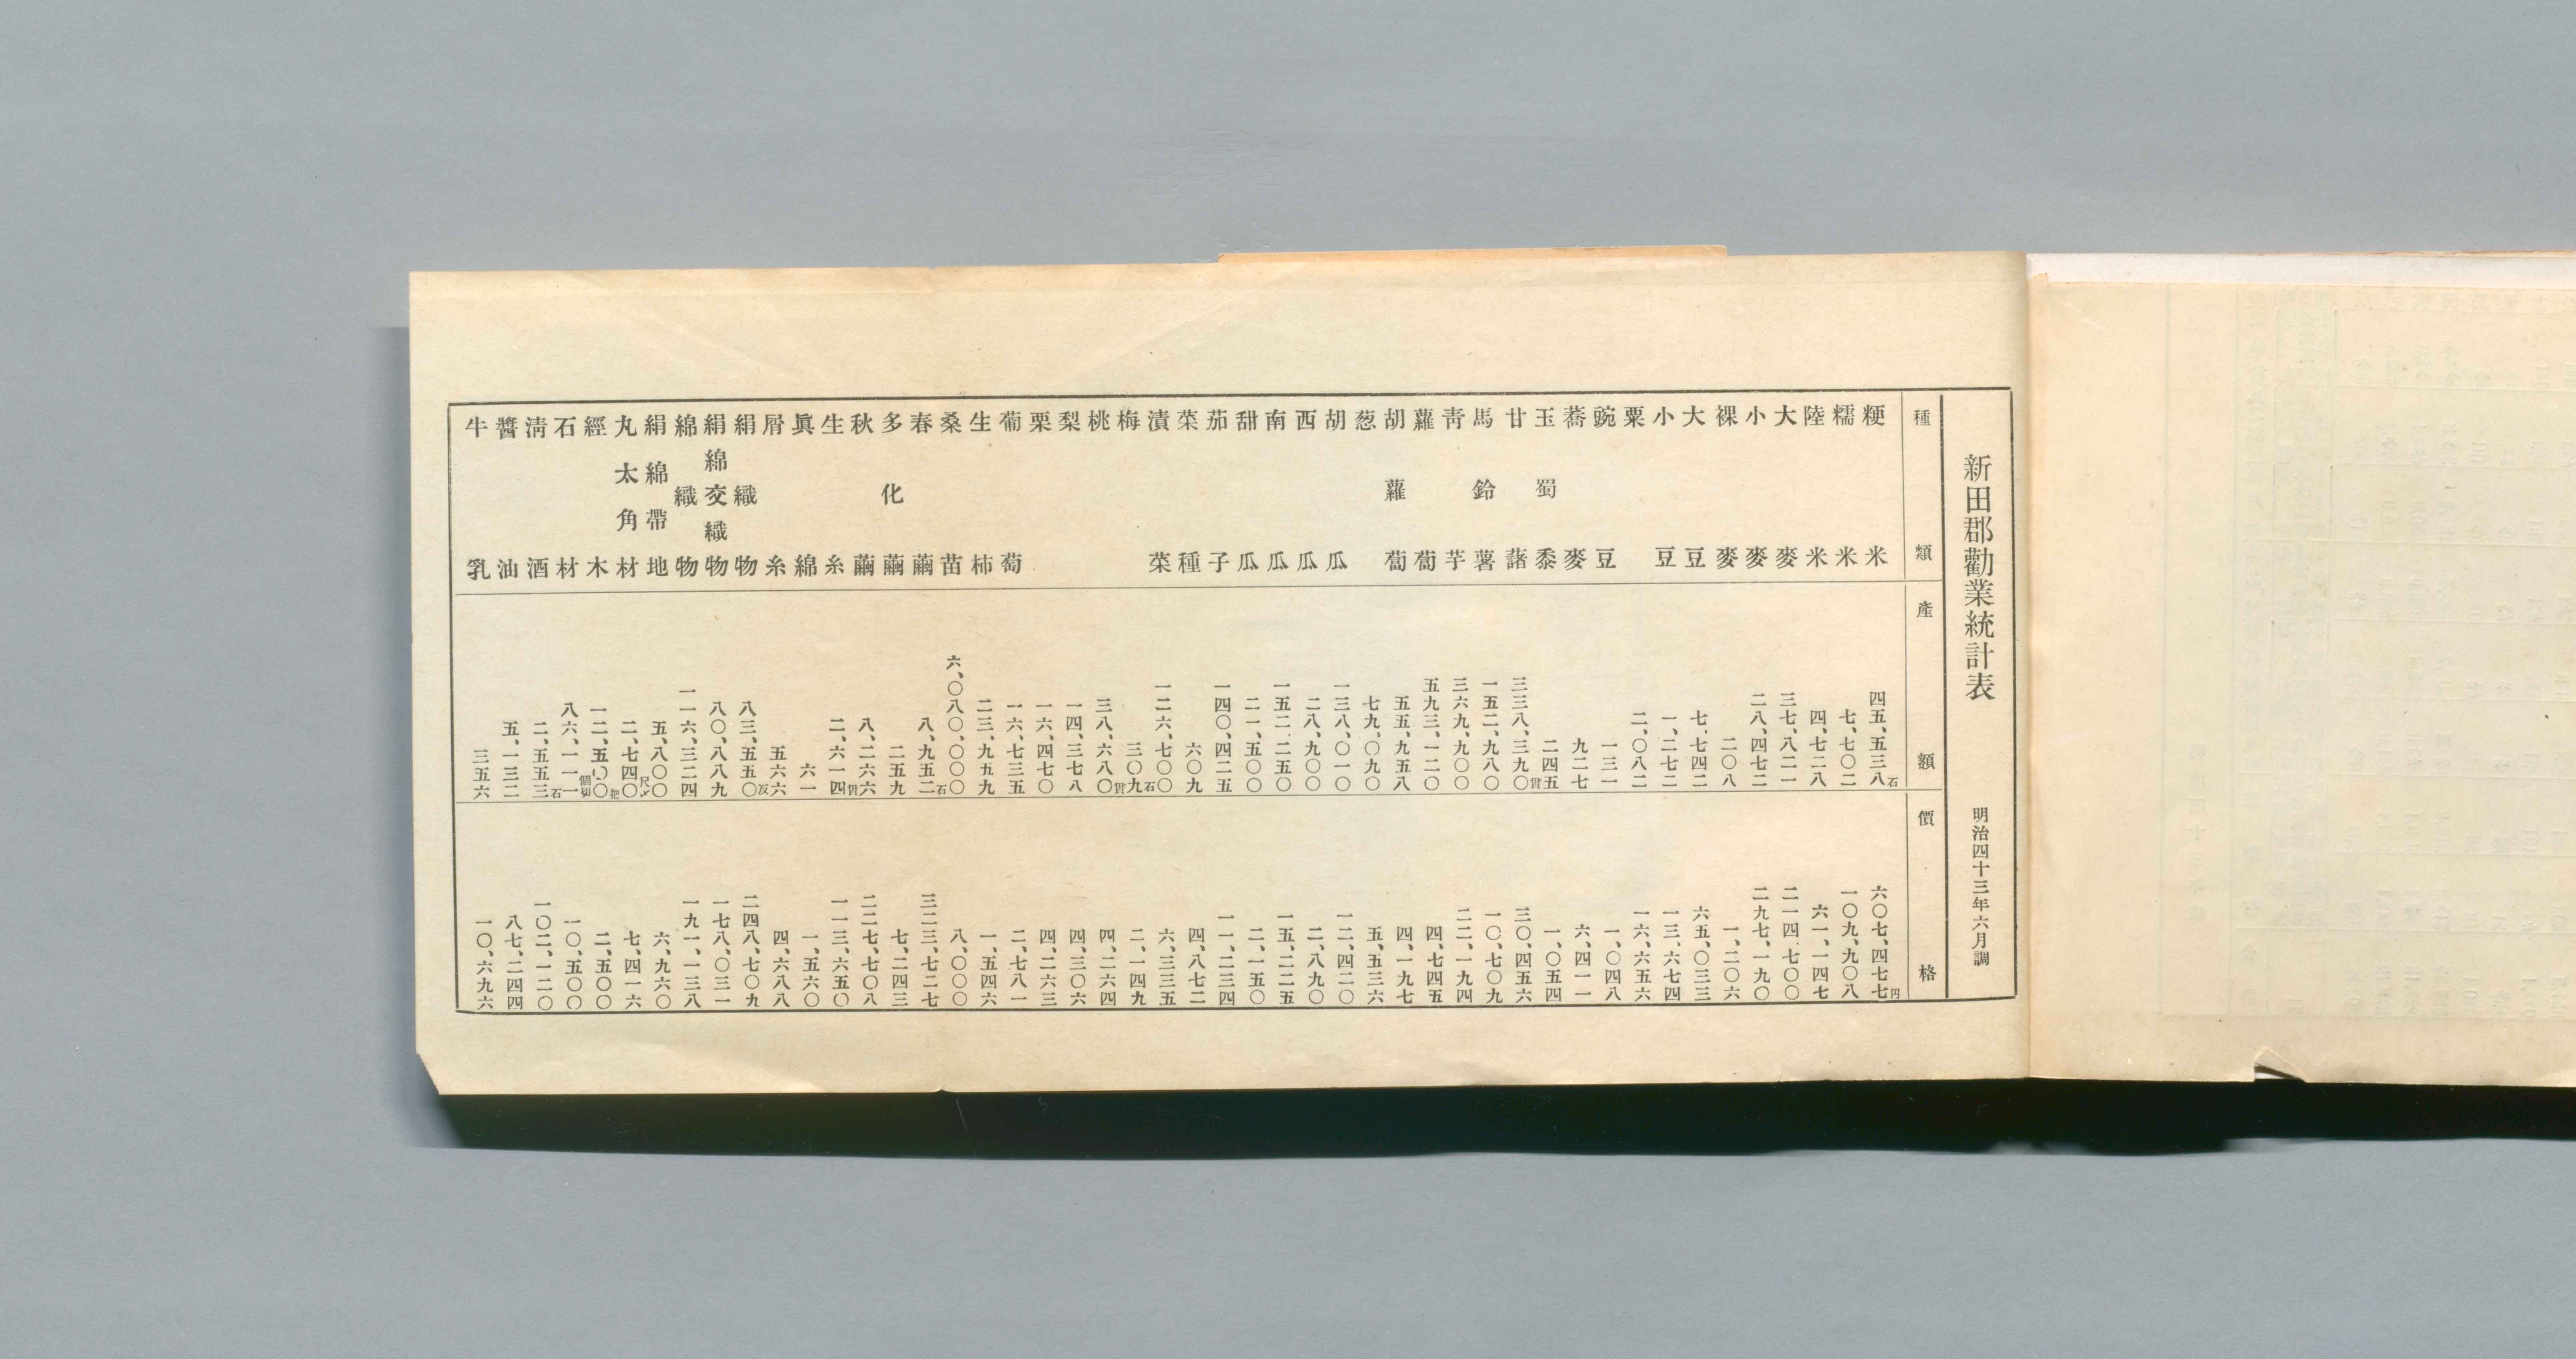 新田郡勸業統計表 明治四十三年六月調
種類 產額 價格
粳米 四五、五三八石 六〇七、四七七円
糯米 七、七〇二 一〇九、九〇八
陸米 四、七二八 六一、一四七
大麥 三七、八二一 二一四、七〇〇
小麥 二八、四七二 二九七、一九〇
裸麥 二〇八 一、二〇六
大豆 七、七四二 六五、〇三三
小豆 一、二七二 一三、六七四
粟 二、〇八二 一六、六五六
豌豆 一三一 一、〇四八
蕎麥 九二七 六、四一一
玉蜀黍 二四五 一、〇五四
甘藷 三三八、三九〇貫 三〇、四五六
馬鈴薯 一五二、九八〇 一〇、七〇九
靑芋 三六九、九〇〇 二二、一九四
蘿蔔 五九三、一二〇 四、七四五
胡蘿蔔 五五、九五八 四、一九七
葱 七九、〇九〇 五、五三六
胡瓜 一三八、〇一〇 一二、四二〇
西瓜 二八、九〇〇 二、八九〇
南瓜 一五二、二五〇 一五、二二五
甜瓜 二一、五〇〇 二、一五〇
茄子 一四〇、四二五 一一、二三四
菜種 六〇九 四、八七二
漬菜 一二六、七〇〇 六、三三五
梅 三〇九石 二、一四九
桃 三八、六八〇貫 四、二六四
梨 一四、三七八 四、三〇六
栗 一六、四七〇 四、二六三
葡萄 一六、七三五 二、七八一
生柿 二三、九五九 一、五四六
桑苗 六、〇八〇、〇〇〇 八、〇〇〇
春繭 八、九五二石 三二三、七二七
多化繭 二五九 七、二四三
秋繭 八、二六六 二二七、七〇八
生糸 二、六一四貫 一一三、六五〇
眞綿 六一 一、五六〇
屑糸 五六六 四、六八八
絹織物 八三、五五〇反 二四八、七〇九
絹綿交織物 八〇、八八九 一七八、〇三一
綿織物 一一六、三二四 一九一、一三八
絹綿帶地 五、八〇〇 六、九六〇
丸太角材 二、七四〇尺〆 七、四一六
經木 一二、五〇〇把 二、五〇〇
石材 八六、一一一個切 一〇、五〇〇
淸酒 二、五五三石 一〇二、一二〇
醬油 五、一三二 八七、二四四
牛乳 三五六 一〇、六九六